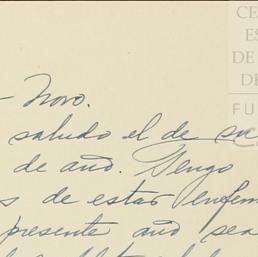 CE
ES
DE
DE
FU
- Novo.
saludo el de su
de año. Tengo
s de estar enfem
presente año sea